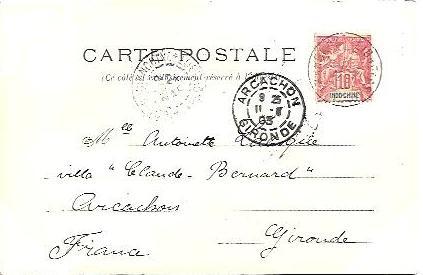 CARTE POSTALE
(Ce côté est exclusivement réservé à
10
INDO-CHINE
ARCACHON
9 25
11
03
GIRONDE
Mlle Antoinette
villa "Claude-Bernard"
Arcachon
Gironde
France